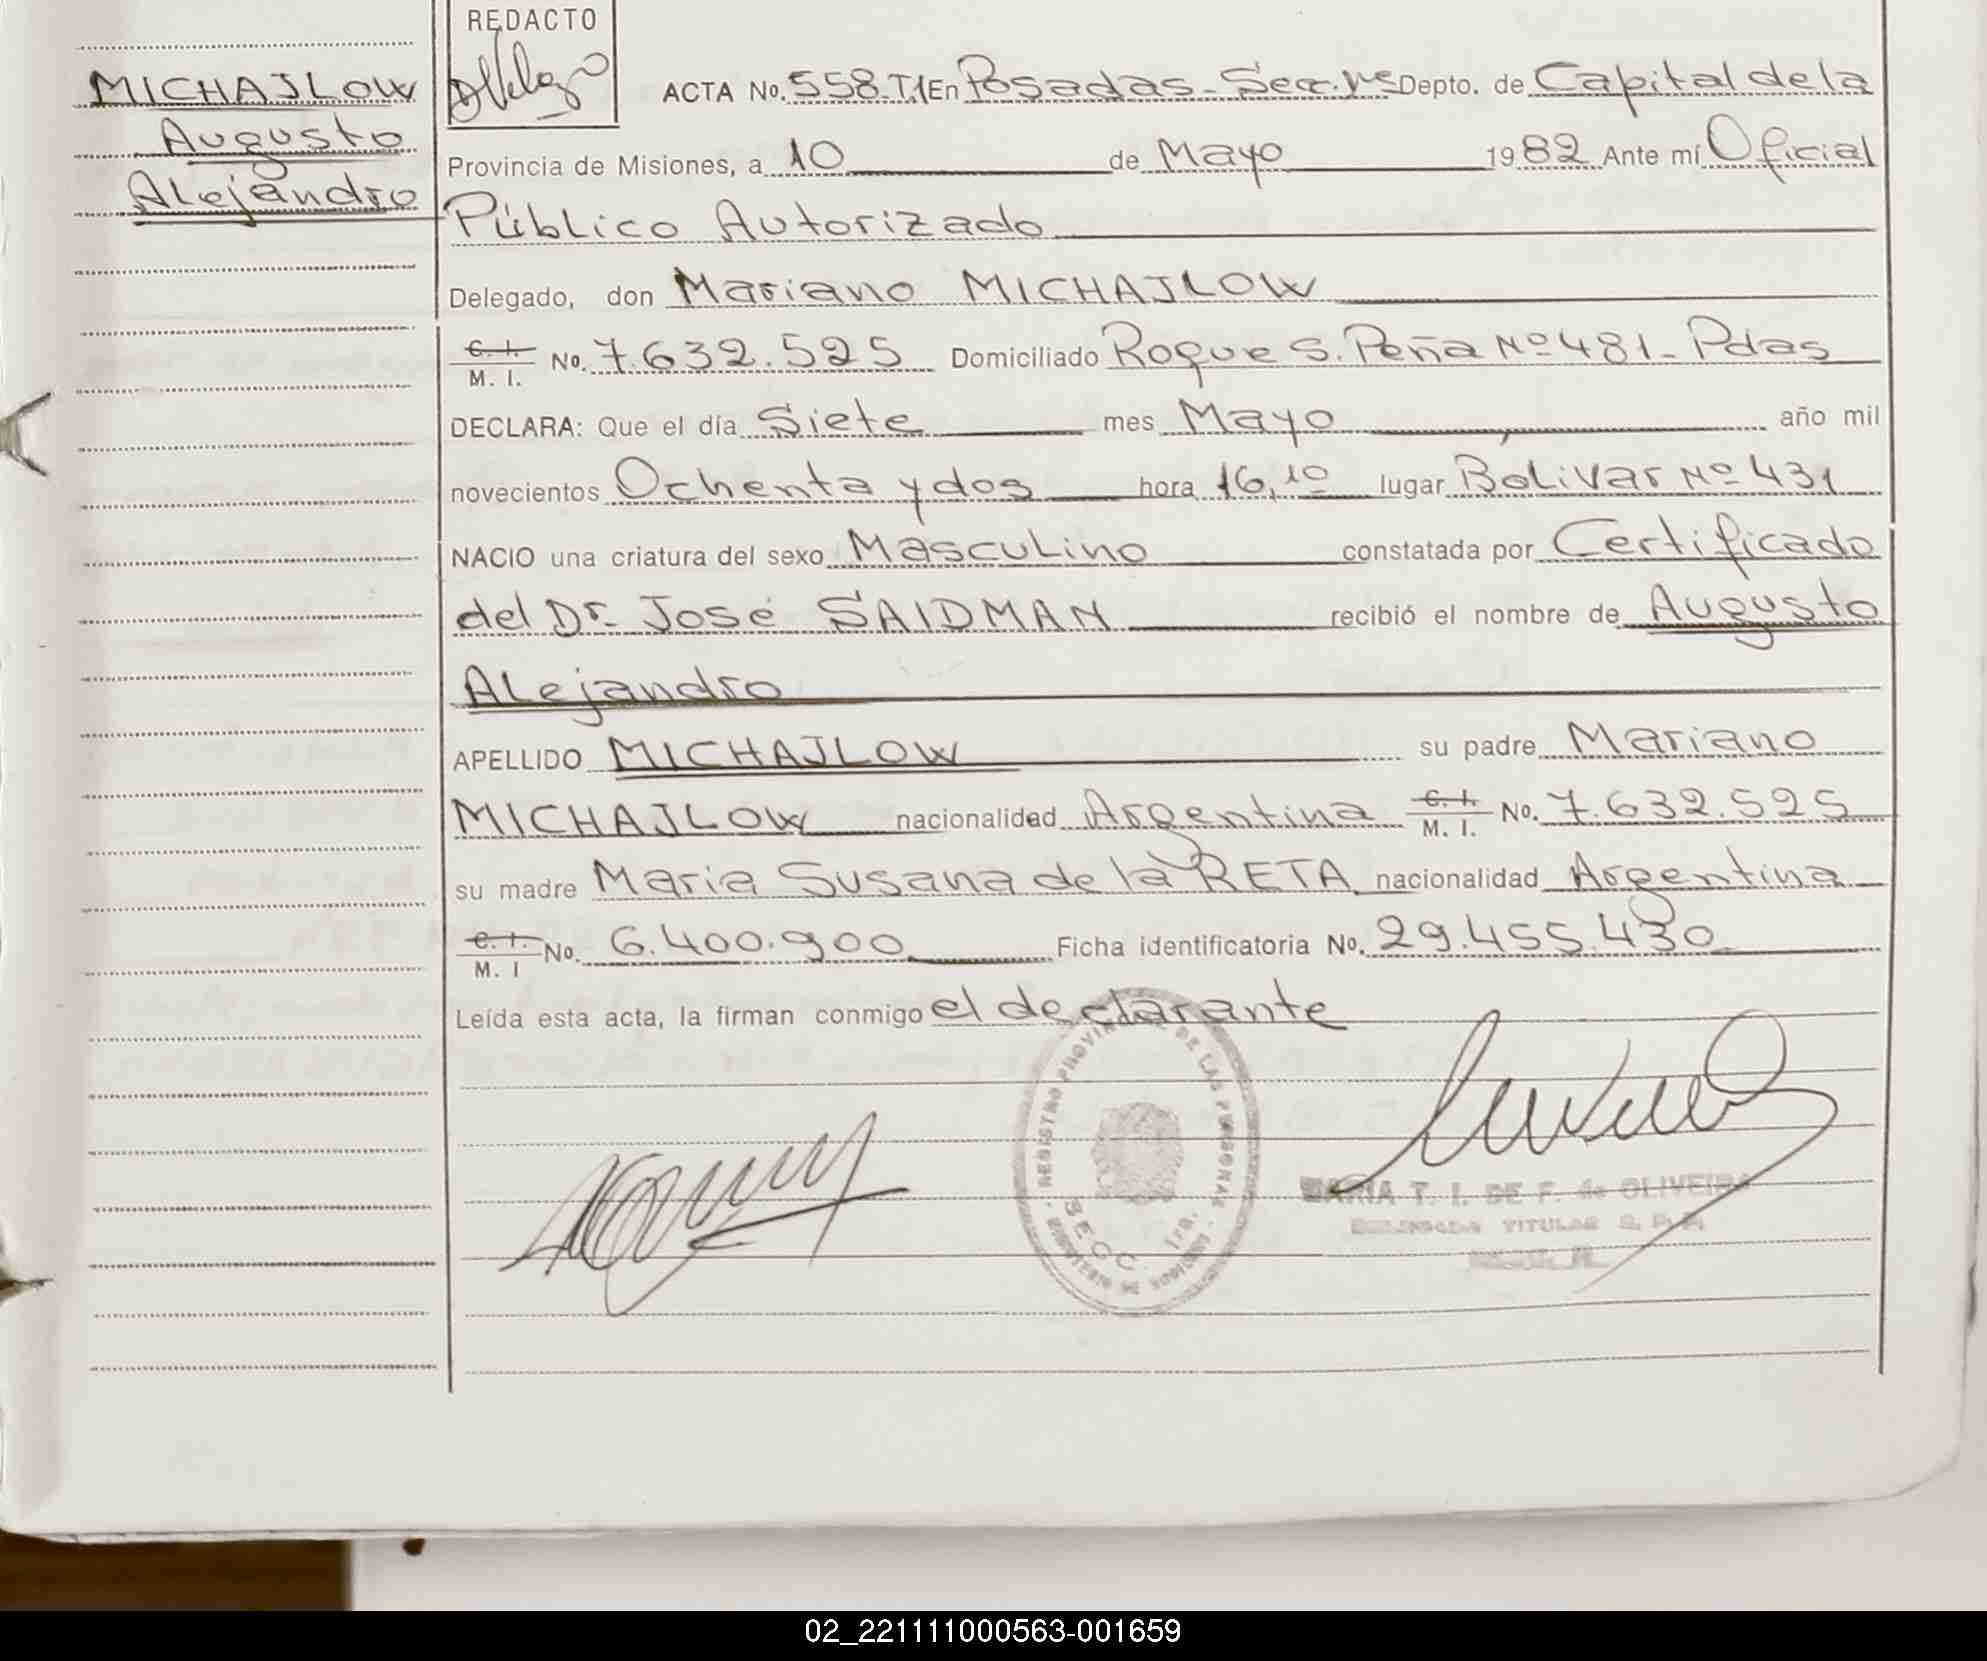 REDACTO
MICHAJLOW
Augusto
Alejandro
ACTA No. 558-T.1 En Posadas - Secc. 1ra Depto. de Capital de la
Provincia de Misiones, a 10 de Mayo 1982 Ante mí Oficial
Público Autorizado
Delegado, don Mariano MICHAJLOW
C. I. M. I. No. 7.632.525 Domiciliado Roque S. Peña Nº 481 - Pdas
DECLARA: Que el día Siete mes Mayo año mil
novecientos Ochenta y dos hora 16,10 lugar Bolívar Nº 431
NACIO una criatura del sexo Masculino constatada por Certificado
del Dr. José SAIDMAN recibió el nombre de Augusto
Alejandro
APELLIDO MICHAJLOW su padre Mariano
MICHAJLOW nacionalidad Argentina C. I. M. I. No. 7.632.525
su madre Maria Susana de la RETA nacionalidad Argentina
C. I. M. I No. 6.400.900 Ficha identificatoria No. 29.455.430
Leída esta acta, la firman conmigo el declarante
REGISTRO PROVINCIAL DE LAS PERSONAS
SECC 1ra.
MARIA T. I. DE F. de OLIVEIRA
DELEGADA TITULAR R. P. P.
02_221111000563-001659